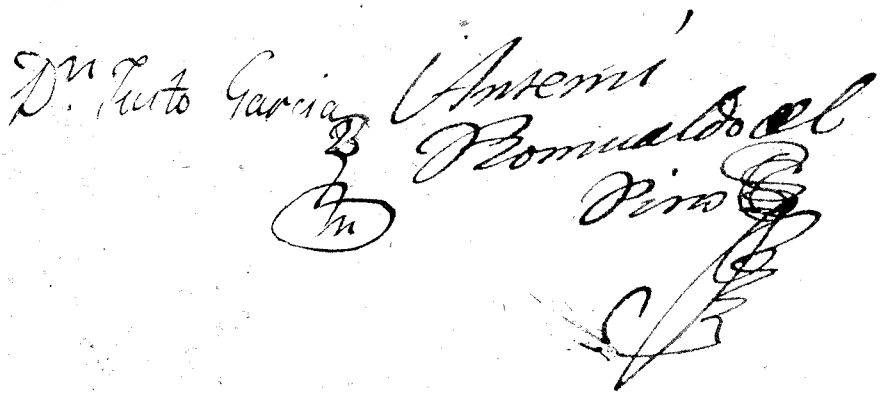 Dn. Justo Garcia
Antemí
Romualdo del
Pino